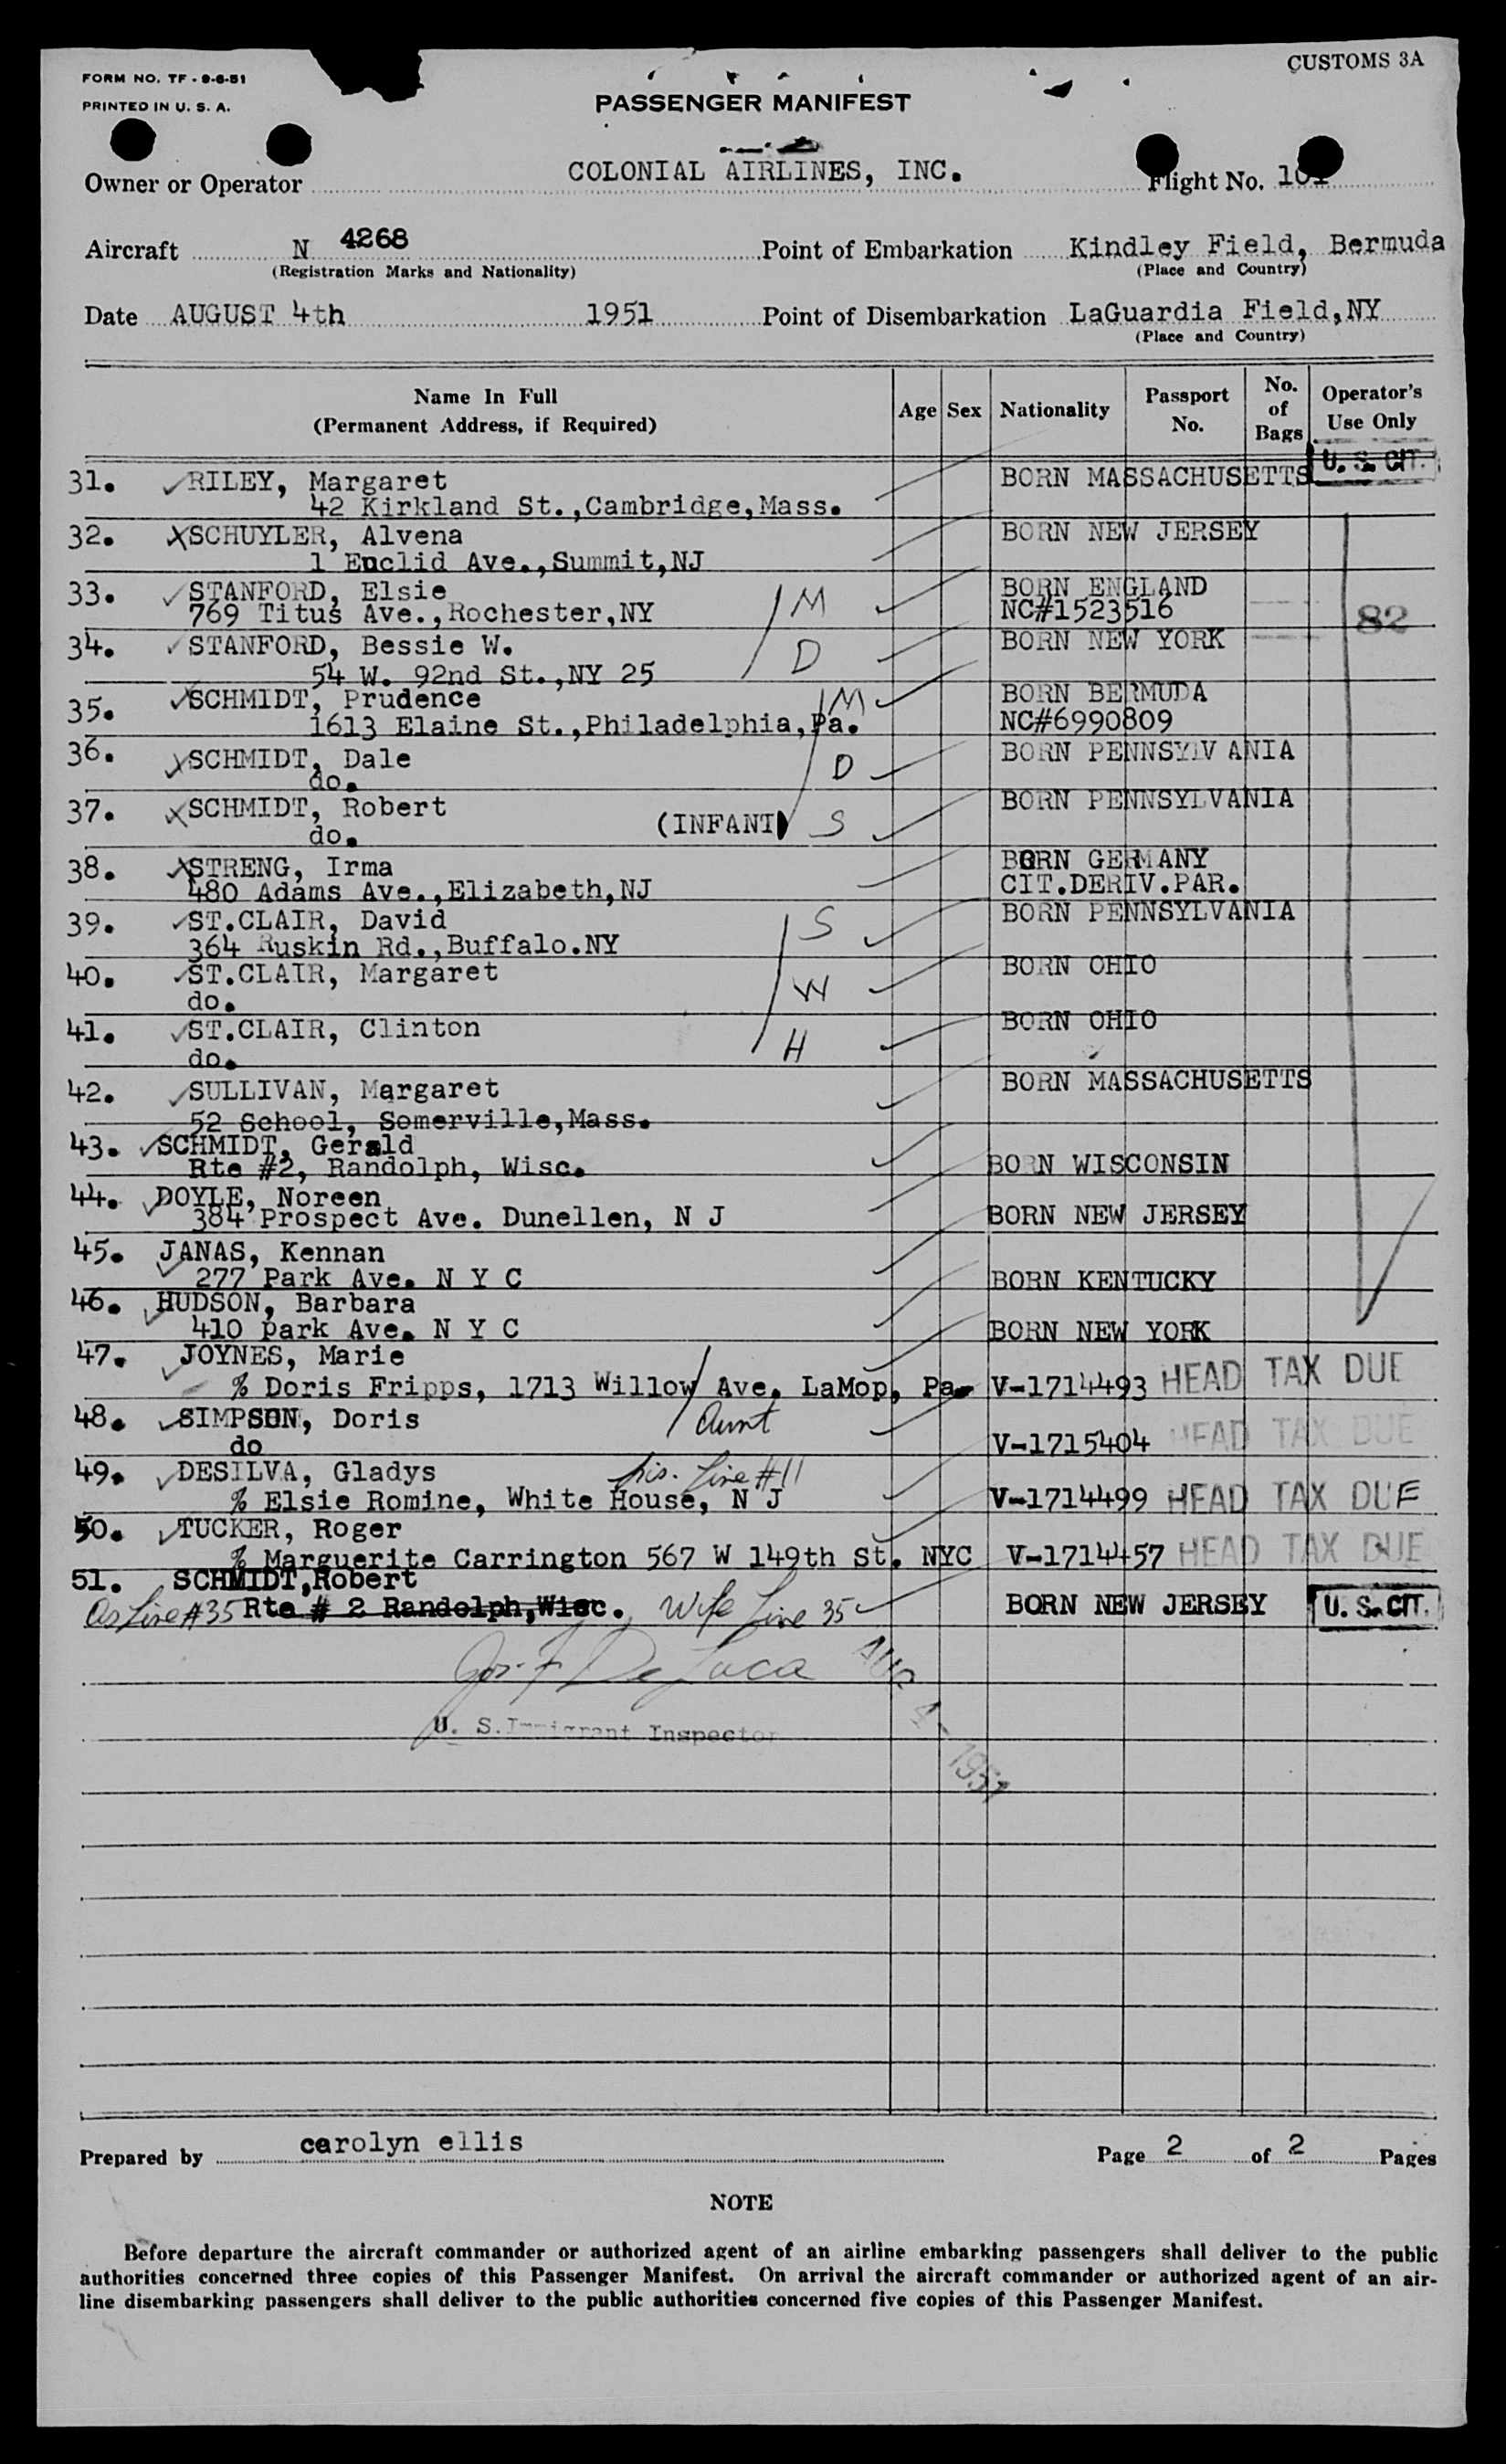 CUSTOMS 3A
FORM NO. TF - 9-6-51
PRINTED IN U. S. A.
PASSENGER MANIFEST
Owner or Operator COLONIAL AIRLINES, INC. Flight No. 101
Aircraft N 4268 Point of Embarkation Kindley Field, Bermuda
(Registration Marks and Nationality) (Place and Country)
Date AUGUST 4th 1951 Point of Disembarkation LaGuardia Field,NY
(Place and Country)
Name In Full
(Permanent Address, if Required)
Age Sex Nationality Passport No. No. of Bags Operator's Use Only
31. RILEY, Margaret BORN MASSACHUSETTS U. S. CIT.
42 Kirkland St.,Cambridge,Mass.
32. SCHUYLER, Alvena BORN NEW JERSEY
1 Euclid Ave.,Summit,NJ
33. STANFORD, Elsie M BORN ENGLAND
769 Titus Ave.,Rochester,NY NC#1523516 82
34. STANFORD, Bessie W. D BORN NEW YORK
54 W. 92nd St.,NY 25
35. SCHMIDT, Prudence M BORN BERMUDA
1613 Elaine St.,Philadelphia,Pa. NC#6990809
36. SCHMIDT, Dale D BORN PENNSYLVANIA
do.
37. SCHMIDT, Robert (INFANT) S BORN PENNSYLVANIA
do.
38. STRENG, Irma BORN GERMANY
480 Adams Ave.,Elizabeth,NJ CIT.DERIV.PAR.
39. ST.CLAIR, David S BORN PENNSYLVANIA
364 Ruskin Rd.,Buffalo.NY
40. ST.CLAIR, Margaret W BORN OHIO
do.
41. ST.CLAIR, Clinton H BORN OHIO
do.
42. SULLIVAN, Margaret BORN MASSACHUSETTS
52 School, Somerville,Mass.
43. SCHMIDT, Gerald
Rte #2, Randolph, Wisc. BORN WISCONSIN
44. DOYLE, Noreen
384 Prospect Ave. Dunellen, N J BORN NEW JERSEY
45. JANAS, Kennan
277 Park Ave. N Y C BORN KENTUCKY
46. HUDSON, Barbara
410 park Ave. N Y C BORN NEW YORK
47. JOYNES, Marie
% Doris Fripps, 1713 Willow Ave. LaMop, Pa. V-1714493 HEAD TAX DUE
48. SIMPSON, Doris Aunt
do V-1715404 HEAD TAX DUE
49. DESILVA, Gladys sis. Line #11
% Elsie Romine, White House, N J V-1714499 HEAD TAX DUE
50. TUCKER, Roger
% Marguerite Carrington 567 W 149th St. NYC V-1714457 HEAD TAX DUE
51. SCHMIDT,Robert
As Line #35 Rte # 2 Randolph,Wisc. Wife Line 35 BORN NEW JERSEY U. S. CIT.
Jos. F. De Luca
U. S. Immigrant Inspector
AUG 4 - 1951
Prepared by carolyn ellis Page 2 of 2 Pages
NOTE
Before departure the aircraft commander or authorized agent of an airline embarking passengers shall deliver to the public
authorities concerned three copies of this Passenger Manifest. On arrival the aircraft commander or authorized agent of an air-
line disembarking passengers shall deliver to the public authorities concerned five copies of this Passenger Manifest.